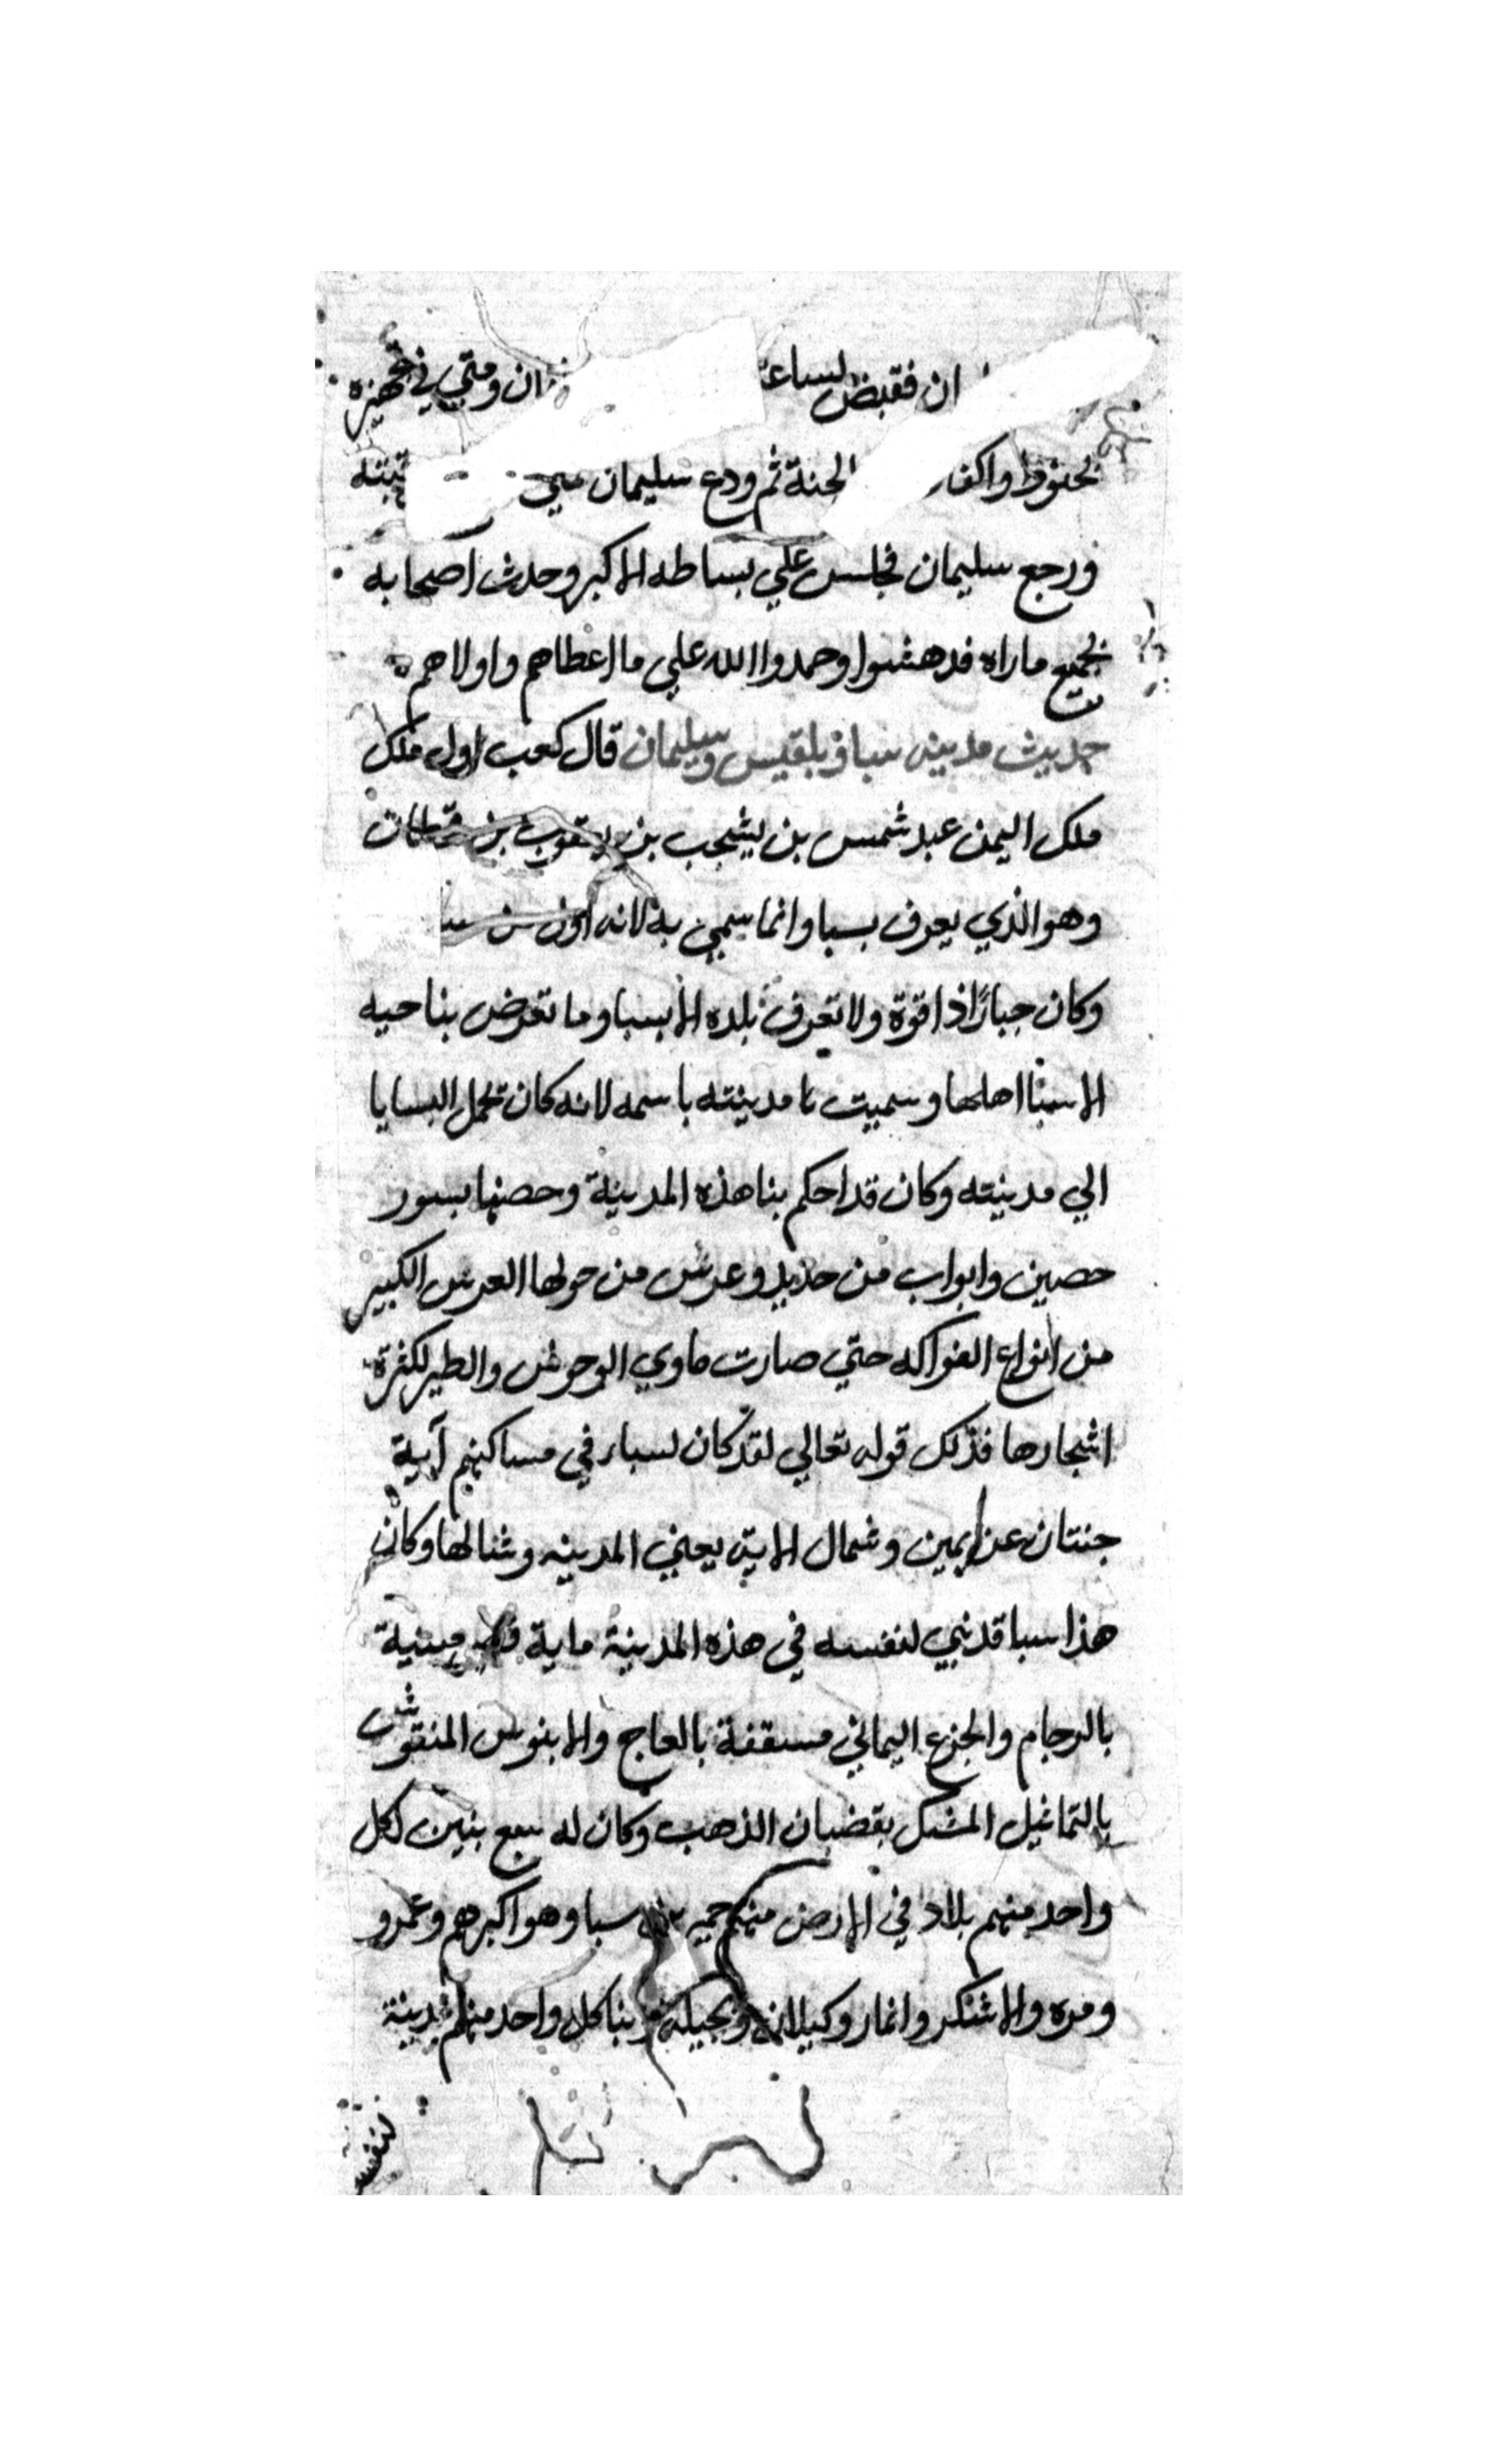 ان فقبض لساعته ان ومتي في تجهيزه
بحنوط واكفان الجنة ثم ودع سليمان
ورجع سليمان فجلس علي بساطه الاكبر وحدث اصحابه
بجميع ماراه فدهشوا وحمدوا الله علي ما اعطاهم واولاهم
حديث مدينه سبا وبلقيس وسليمان قال كعب اول ملك
ملك اليمن عبد شمس بن يشجب بن يعقوب بن قحطان
وهو الذي يعرف بسبا وانما سمي به لانه اول من
وكان جبارًا ذا قوة ولا تعرف بلده الا بسبا وما تعرض بناحيه
الا سبا اهلها وسميت مدينته باسمه لانه كان تحمل السبايا
الي مدينته وكان قد احكم بنا هذه المدينة وحصنها بسور
حصين وابواب من حديد وعرش من حولها العرش الكبير
من انواع الفواكه حتي صارت ماوي الوحوش والطير لكثرة
اشجارها فذلك قوله تعالي لقد كان لسباء في مساكنهم آية
جنتان عن يمين وشمال الاية يعني المدينه وشمالها وكان
هذا سبا قد بني لنفسه في هذه المدينة ماية مبنية
بالرخام والجزع اليماني مسقفة بالعاج والابنوس المنقوش
بالتماثيل المشبك بقضبان الذهب وكان له سبع بنين لكل
واحد منهم بلاد في الارض منهم حمير بن سبا وهو اكبرهم وعمرو
ومره والاشكر وانمار وكيلان وبجيلة وبنا كل واحد منهم مدينة
لنفسه